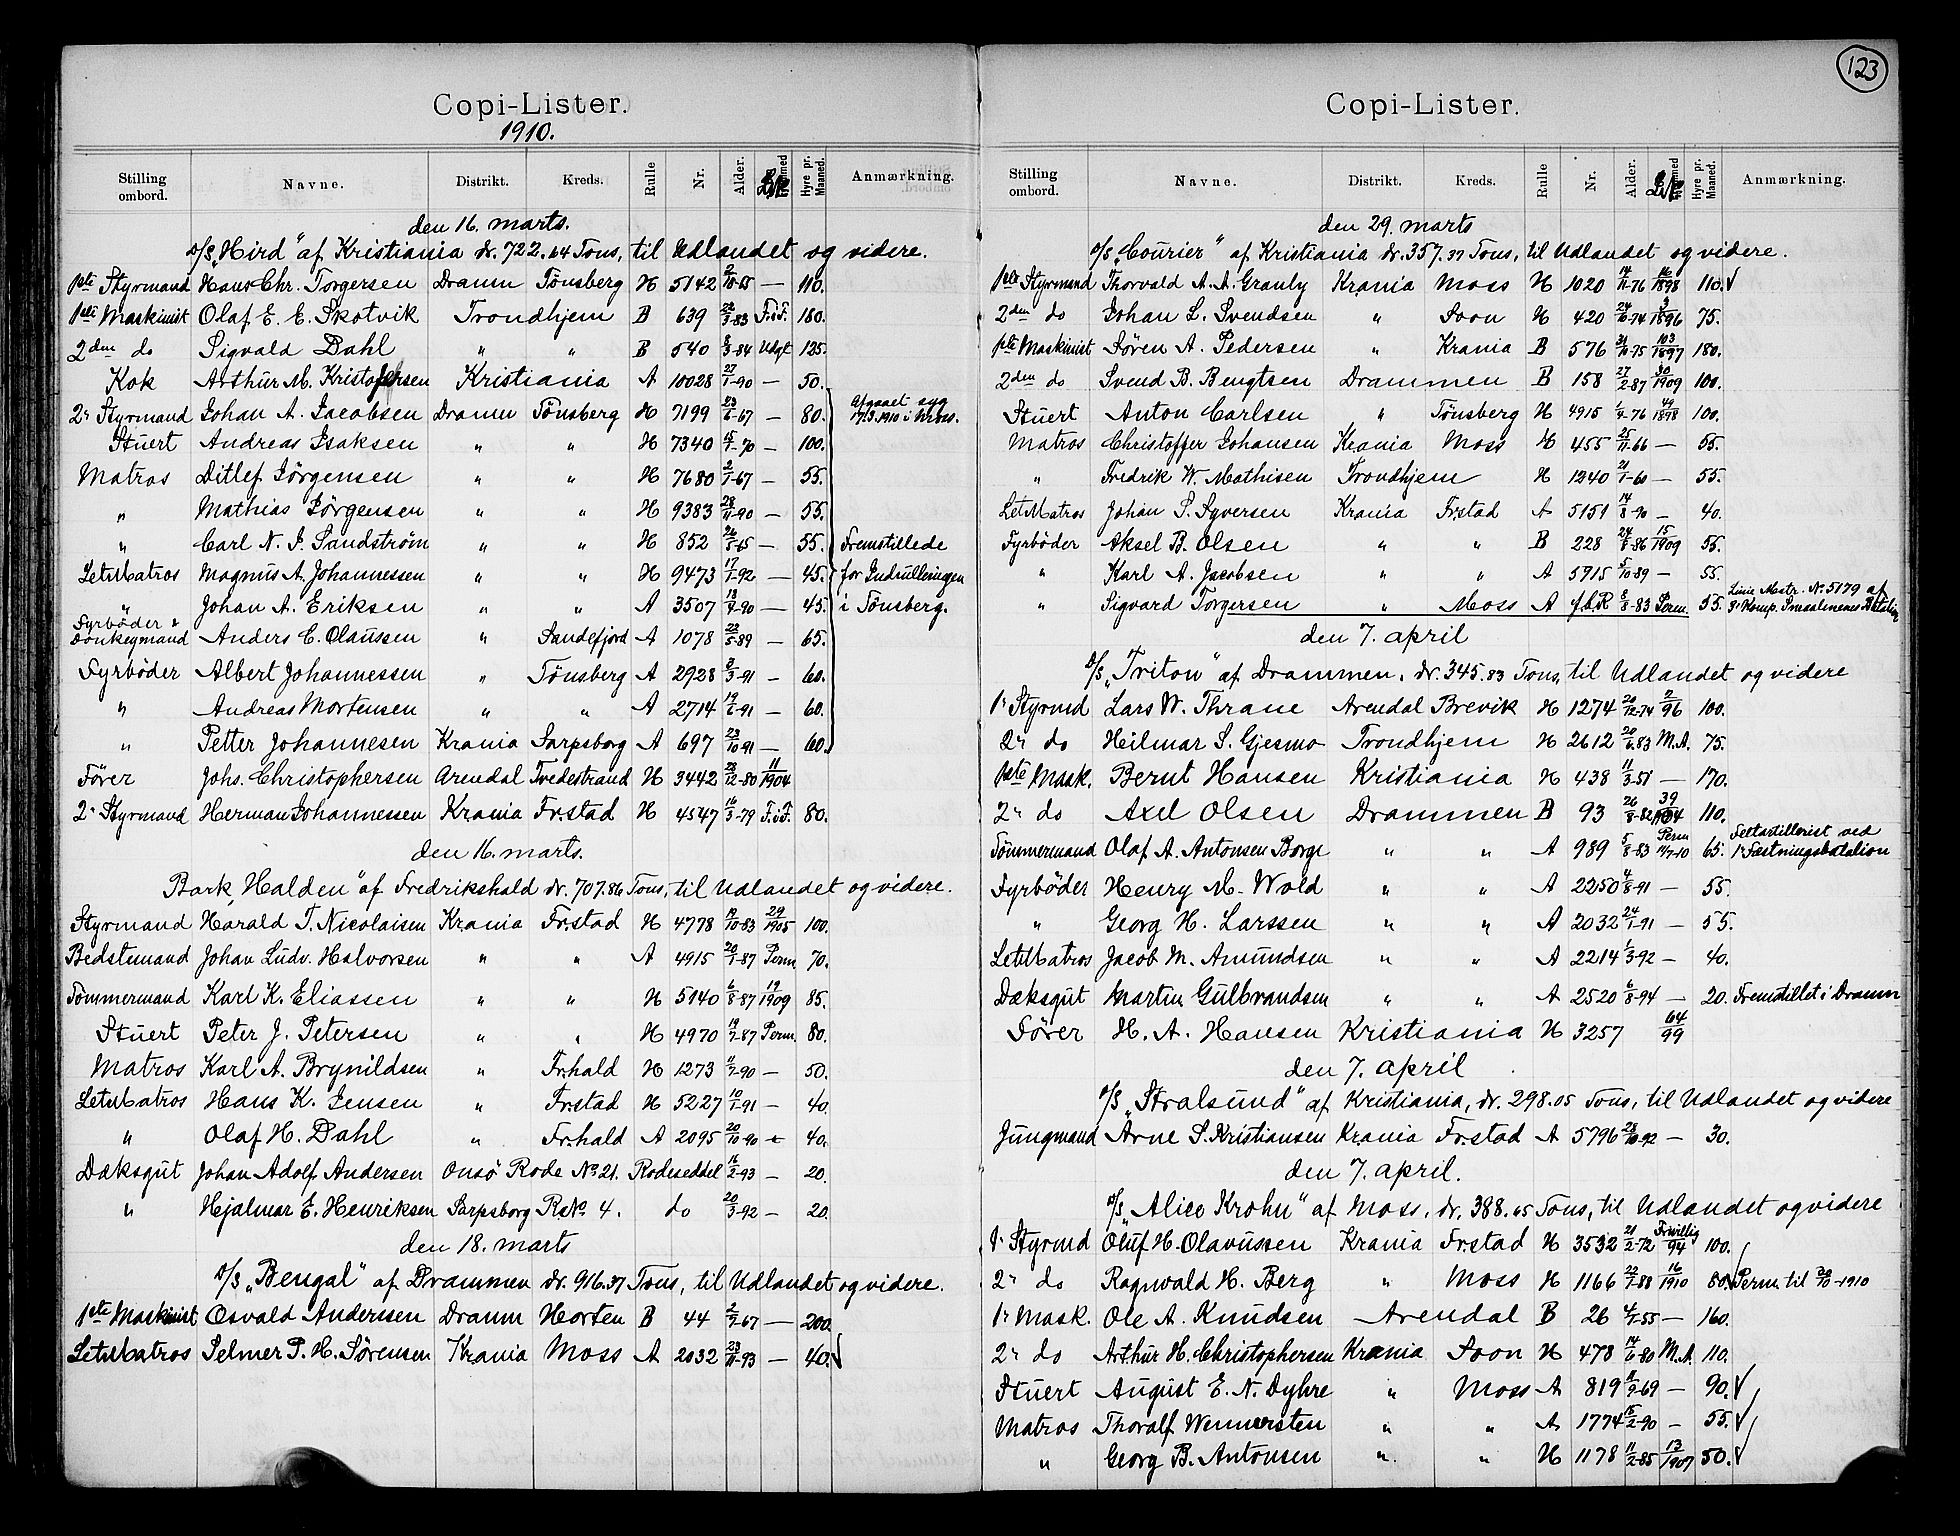 Copi-Lister.
1910.
Stilling ombord. Navne. Distrikt. Kreds. Rulle Nr. Alder. Hyre pr. Maaned. Anmærkning.
den 16. marts.
D/S „Hird" af Kristiania dr. 722.64 Tons, til Udlandet og videre.
1ste Styrmand Hans Chr. Torgersen Dramn Tönsberg H 5142 2/10-65 — 110.
1ste Maskinist Olaf E. E. Skotvik Trondhjem B 639 22/3-83 F.i.F. 180.
2den do Sigvald Dahl " " B 540 8/3-84 Udgt 125.
Kok Arthur M. Kristofersen Kristiania A 10028 27/1-90 — 50.
2n Styrmand Johan A. Jacobsen Dramn Tönsberg H 7199 23/6-67 — 80. Afgaaet syg 17/3.1910 i Moss.
Stuert Andreas Isaksen " " H 7340 15/1-70 — 100.
Matros Ditlef Jörgensen " " H 7680 2/1-67 — 55.
" Mathias Jörgensen " " H 9383 28/11-90 — 55.
" Carl N. J. Sandström " " H 852 26/5-65 — 55. Fremstillede
LetMatros Magnus A. Johannessen " " H 9473 17/1-92 — 45. for Indrulleringen
" Johan A. Eriksen " " A 3507 13/4-90 — 45. i Tönsberg.
Fyrböder & Donkeymand Anders C. Olaussen " Sandefjord A 1078 22/5-89 — 65.
Fyrböder Albert Johannessen " Tönsberg A 2928 2/3-91 — 60.
" Andreas Mortensen " " A 2714 19/6-91 — 60.
" Petter Johannesen Krania Sarpsborg A 697 23/10-91 — 60.
Förer Johs. Christophersen Arendal Tvedestrand H 3442 23/12-80 11/1904
2n Styrmand Herman Johannessen Krania Fr.stad H 4547 16/3-79 F.i.F. 80.
den 16. marts.
Bark „Halden" af Fredrikshald dr. 707.86 Tons, til Udlandet og videre.
Styrmand Harald T. Nicolaisen Krania Fr.stad H 4778 19/10-83 29/1905 100.
Bedstemand Johan Ludv. Halvorsen " " A 4915 20/1-87 Perm 70.
Tömmermand Karl K. Eliassen " " H 5140 6/8-87 19/1909 85.
Stuert Peter J. Petersen " " H 4970 19/7-87 Perm. 80.
Matros Karl A. Brynildsen " Fr.hald H 1273 11/7-90 — 50.
LetMatros Hans K. Jensen " Fr.stad H 5227 10/1-91 — 40.
" Olaf H. Dahl " Fr.hald A 2095 20/10-90 — 40.
Dæksgut Johan Adolf Andersen Onsö Rode No 21. Rodeseddel 11/2-93 — 20.
" Hjalmar E. Henriksen Sarpsborg R. No. 4. do 20/3-92 — 20.
den 18. marts
D/S „Bengal" af Drammen dr. 916.37 Tons, til Udlandet og videre.
1ste Maskinist Osvald Anderssen Dramn Horten B 44 2/7-67 — 200.
LetMatros Selmer P. H. Sörensen Krania Moss A 2032 23/11-93 — 40.
123
Copi-Lister.
Stilling ombord. Navne. Distrikt. Kreds. Rulle Nr. Alder. Hyre pr. Maaned. Anmærkning.
den 29. marts
D/S „Courier" af Kristiania dr. 357.37 Tons, til Udlandet og videre.
1ste Styrmand Thorvald A. A. Granly Krania Moss H 1020 14/11-76 16/1898 110.
2den do Johan L. Svendsen " Soon H 420 24/6-74 3/1896 75.
1ste Maskinist Sören A. Pedersen " Krania B 576 31/10-75 103/1897 180.
2den do Svend B. Bengtsen Drammen B 158 27/2-87 30/1909 100.
Stuert Anton Carlsen " Tönsberg H 4915 1/9-76 49/1898 100.
Matros Christoffer Johansen Krania Moss H 455 25/11-66 — 55.
" Fredrik W. Mathisen Trondhjem H 1240 21/1-60 — 55.
LetMatros Johan S. Syversen Krania Fr.stad A 5151 14/8-90 — 40.
Fyrböder Aksel B. Olsen " " B 228 24/8-86 15/1909 55.
" Karl A. Jacobsen " " A 5915 5/10-89 — 55.
" Sigvard Torgersen " Moss A f.b.R 8/8-83 Perm. 55. Linie Mstr. No. 5179 af 3' Komp. Smaalenenes Batalion
den 7. april
D/S „Triton" af Drammen, dr. 345.83 Tons, til Udlandet og videre
1n Styrmd Lars W. Thrane Arendal Brevik H 1274 20/12-74 2/96 100.
2n do Hilmar S. Gjesmo Trondhjem H 2612 20/6-83 M.A. 75.
1ste Mask. Bernt Hansen Kristiania H 438 11/3-51 — 170.
2n do Axel Olsen Drammen B 93 26/8-82 39/1904 110.
Tömmermand Olaf A. Antonsen Borge " " A 989 5/8-83 Perm 11/7-10 65. Feltartillerist ved 1' Fæstningsbatalion
Fyrböder Henry M. Wold " " A 2250 4/8-91 — 55.
" Georg H. Larssen " " A 2032 24/1-91 — 55.
LetMatros Jacob M. Amundsen " " A 2214 1/3-92 — 40.
Dæksgut Martin Gulbrandsen " " A 2520 6/8-94 — 20. Fremstillet i Dramn
Förer H. A. Hansen Kristiania H 3257 64/99
den 7. april
D/S „Stralsund" af Kristiania, dr. 298.05 Tons, til Udlandet og videre
Jungmand Arne S. Kristiansen Krania Fr.stad A 5796 28/10-92 — 30.
den 7. april.
D/S „Alice Krohn" af Moss, dr. 388.65 Tons, til Udlandet og videre
1n Styrmd Oluf H. Olavussen Krania Fr.stad H 3532 21/2-72 Frivillig/94 100.
2n do Ragnvald H. Berg " Moss H 1166 22/7-88 16/1910 80. Perm. til 20/10-1910
1n Mask. Ole A. Knudsen Arendal B 26 4/7-55 — 160.
2n do Arthur H. Christophersen Krania Soon H 478 14/6-80 M.A. 110.
Stuert August E. N. Dyhre " Moss A 819 11/9-69 — 90.
Matros Thoralf Wennersten " " A 1774 15/2-90 — 55.
" Georg B. Antonsen " " H 1178 11/2-85 13/1907 50.